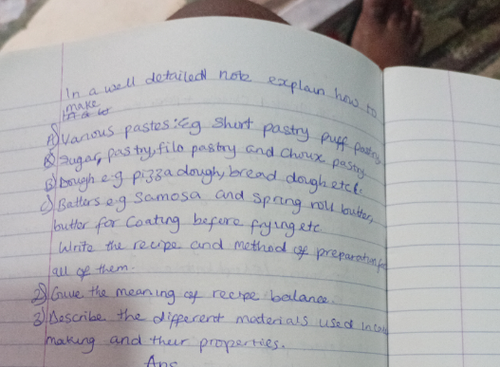 In a well detailed note explain how to
make
A) Various pastes: Eg Short pastry puff pastry
Sugar, pastry, filo pastry and Choux pastry
B) Dough e.g pizza dough, bread dough etc.
C) Batters e.g Samosa and Spring roll butter,
butter for Coating before frying etc
Write the recipe and method of preparation for
all of them.
2) Give the meaning of recipe balance.
3) Describe the different materials used in
making and their properties.
Ans